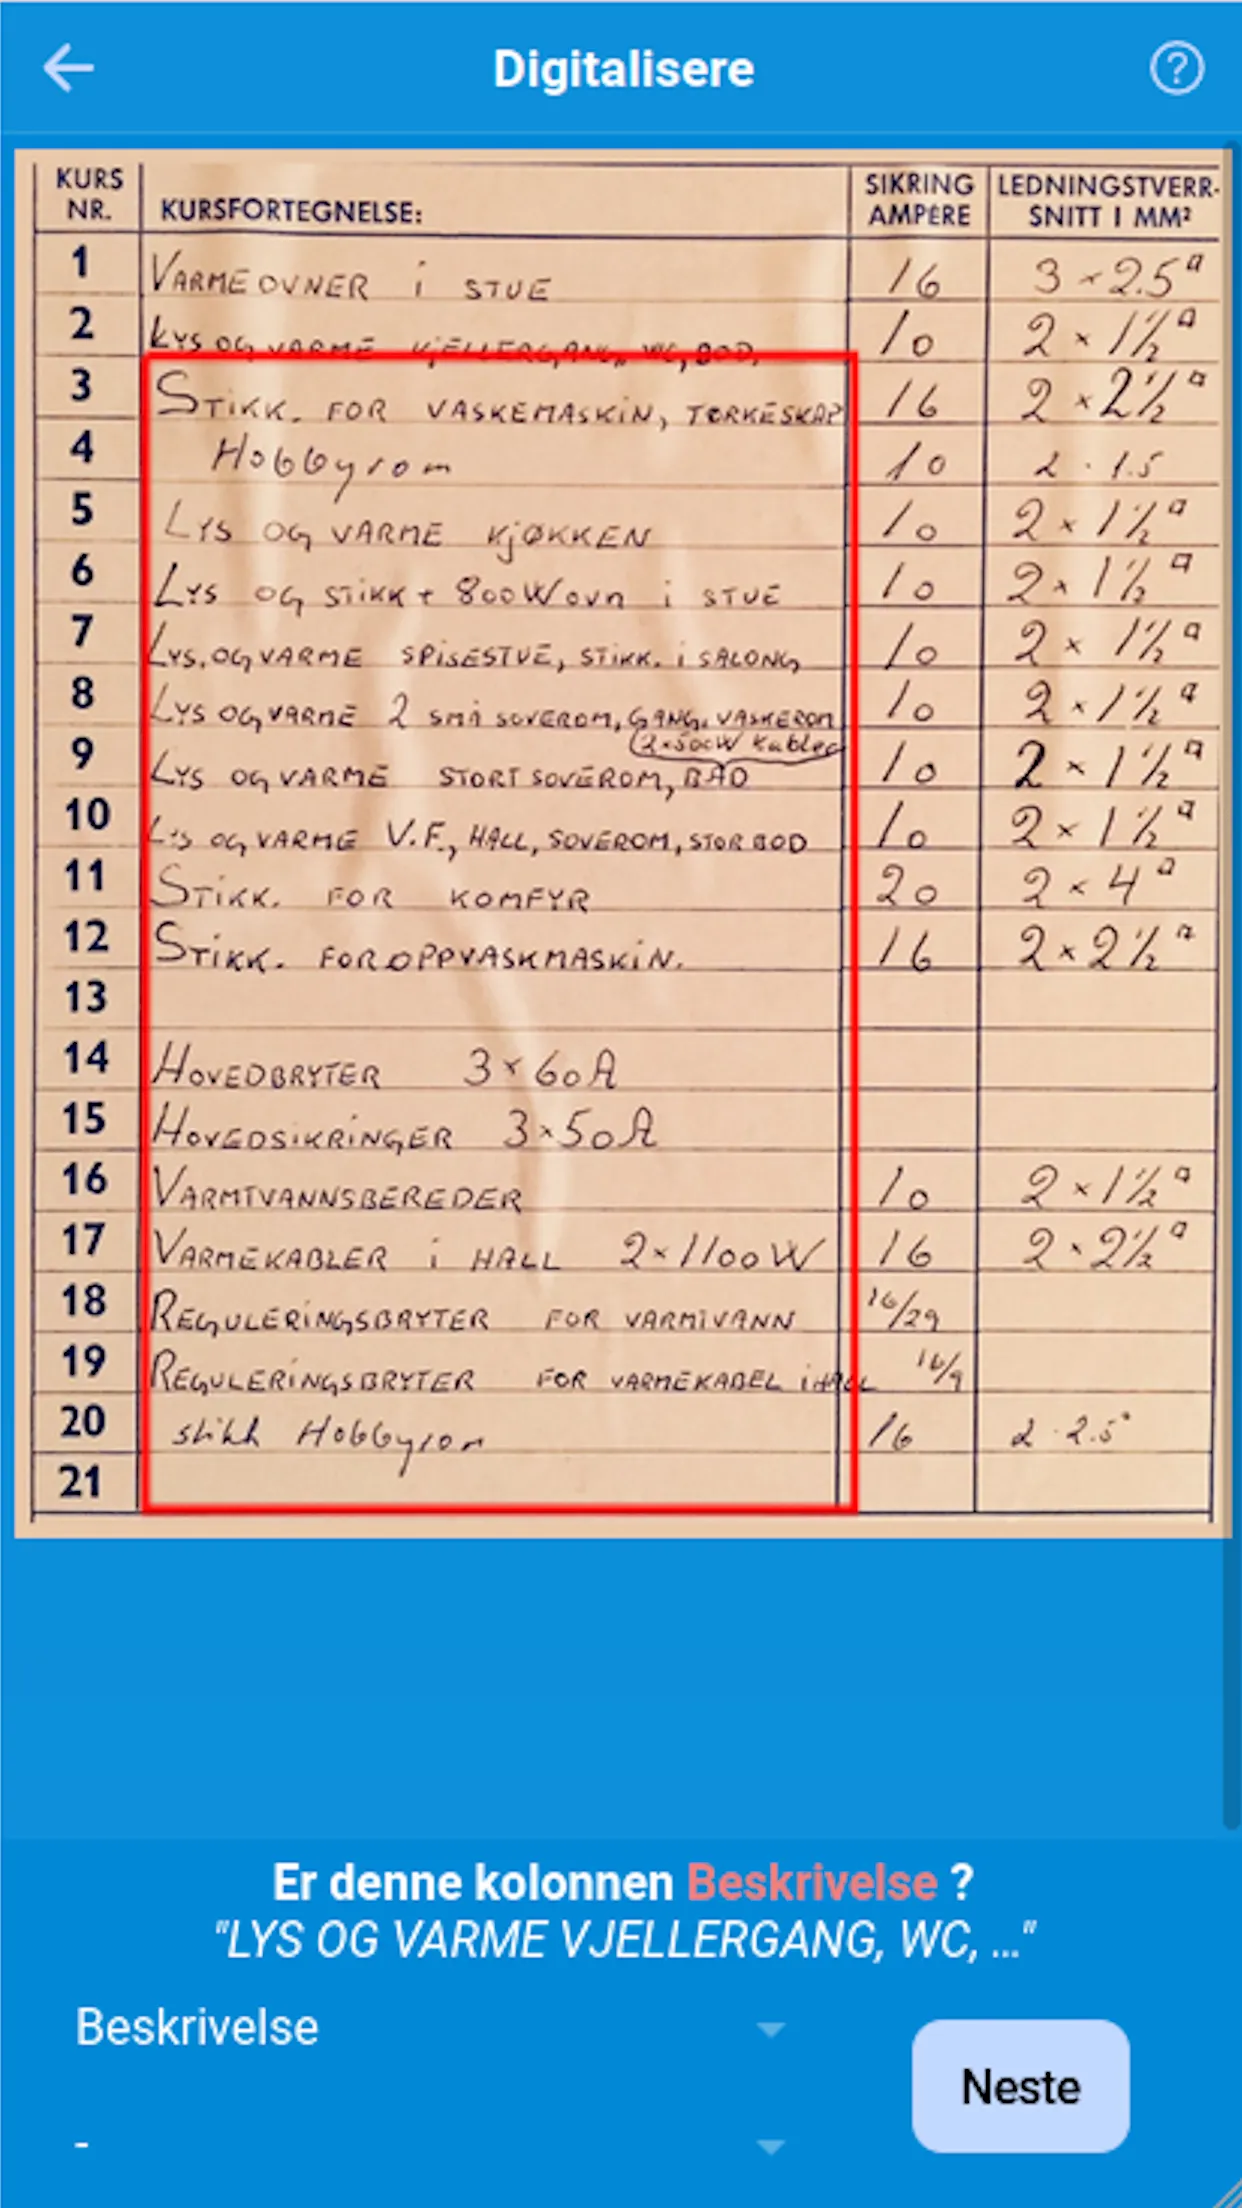 Digitalisere
KURS NR. KURSFORTEGNELSE: SIKRING AMPERE LEDNINGSTVERR-SNITT I MM²
1 VARMEOVNER i STUE 16 3 × 2.5 ▫
2 LYS OG VARME KJELLERGANG, WC, BOD, 10 2 × 1½ ▫
3 STIKK. FOR VASKEMASKIN, TØRKESKAP 16 2 × 2½ ▫
4 Hobbyrom 10 2 · 1.5
5 LYS OG VARME KJØKKEN 10 2 × 1½ ▫
6 LYS OG STIKK + 800W ovn i STUE 10 2 × 1½ ▫
7 LYS. OG VARME SPISESTUE, STIKK. i SALONG, 10 2 × 1½ ▫
8 LYS OG VARME 2 SMÅ SOVEROM, GANG, VASKEROM 10 2 × 1½ ▫
(2×500W kabler
9 LYS OG VARME STORT SOVEROM, BAD 10 2 × 1½ ▫
10 LYS OG VARME V.F., HALL, SOVEROM, STOR BOD 10 2 × 1½ ▫
11 STIKK. FOR KOMFYR 20 2 × 4 ▫
12 STIKK. FOR OPPVASKMASKIN. 16 2 × 2½ ▫
13
14 HOVEDBRYTER 3 × 60A
15 HOVEDSIKRINGER 3 × 50A
16 VARMTVANNSBEREDER 10 2 × 1½ ▫
17 VARMEKABLER i HALL 2 × 1100W 16 2 × 2½ ▫
18 REGULERINGSBRYTER FOR VARMTVANN 16/29
19 REGULERINGSBRYTER FOR VARMEKABEL i HALL 16/9
20 stikk Hobbyrom 16 2 · 2.5
21
Er denne kolonnen Beskrivelse ?
"LYS OG VARME VJELLERGANG, WC, ..."
Beskrivelse
Neste
-